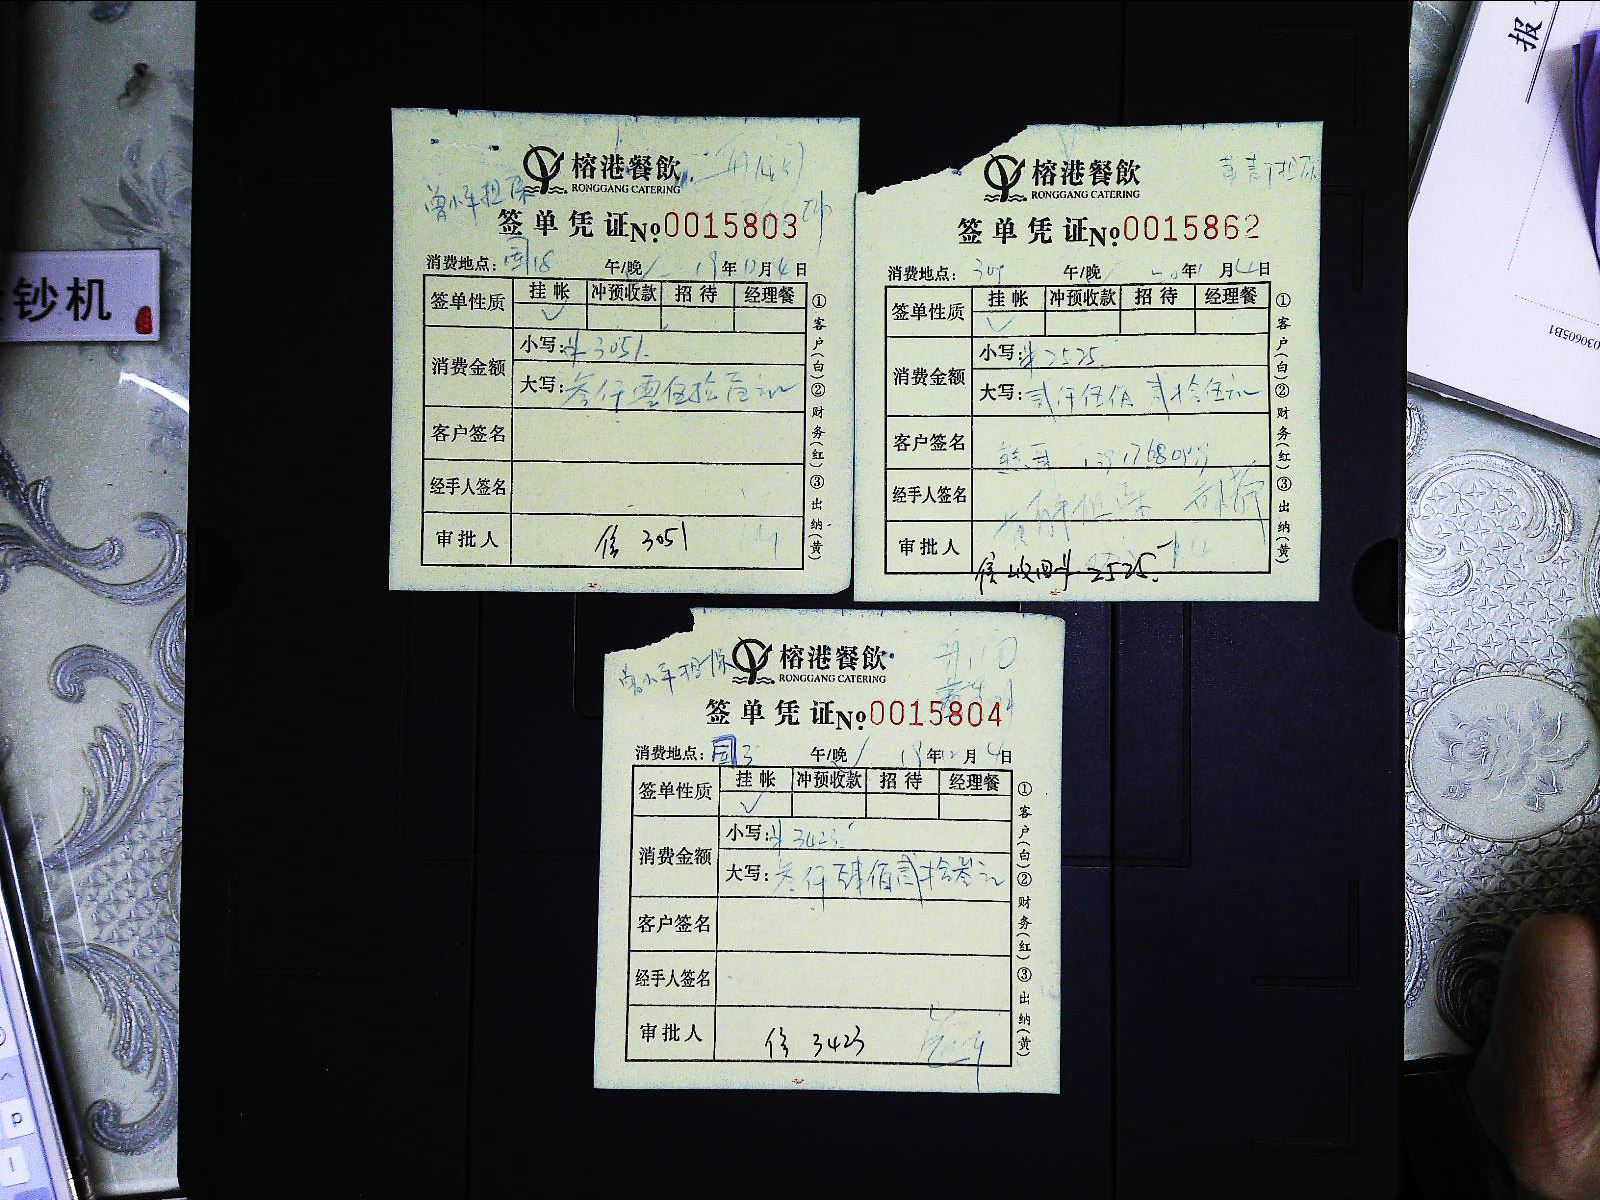 榕港餐飲
RONGGANG CATERING
曾小军担保
签单凭证No.0015803
消费地点：国18 午/晚 19年12月4日
签单性质 挂帐 冲预收款 招待 经理餐
消费金额 小写：¥3051.
大写：叁仟零伍拾壹元
客户签名
经手人签名
审批人 信 3051
①客户(白)②财务(红)③出纳(黄)
榕港餐飲
RONGGANG CATERING
签单凭证No.0015862
消费地点：309 午/晚 20年1月4日
签单性质 挂帐 冲预收款 招待 经理餐
消费金额 小写：¥2525
大写：贰仟伍佰贰拾伍元
客户签名
经手人签名
审批人
信收回¥2525.
①客户(白)②财务(红)③出纳(黄)
榕港餐飲
RONGGANG CATERING
曾小军担保
签单凭证No.0015804
消费地点：国3 午/晚 19年12月4日
签单性质 挂帐 冲预收款 招待 经理餐
消费金额 小写：¥3423
大写：叁仟肆佰贰拾叁元
客户签名
经手人签名
审批人 信 3423
①客户(白)②财务(红)③出纳(黄)
钞机
报
030605B1